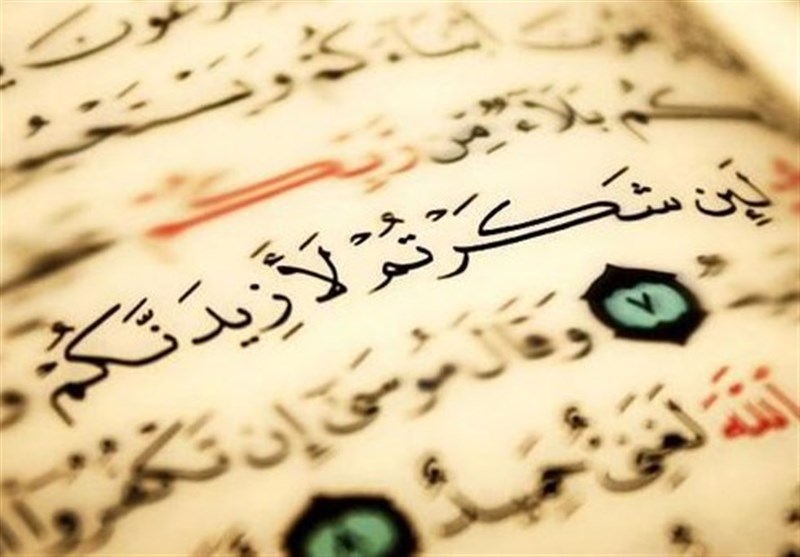 أَبْنَاءَكُمْ
كُم بَلَاءٌ مِّن رَّبِّكُمْ
لَئِن شَكَرْتُمْ لَأَزِيدَنَّكُمْ
٧ وَقَالَ مُوسَىٰ إِن تَكْفُرُوا
اللَّهَ لَغَنِيٌّ حَمِيدٌ ٨